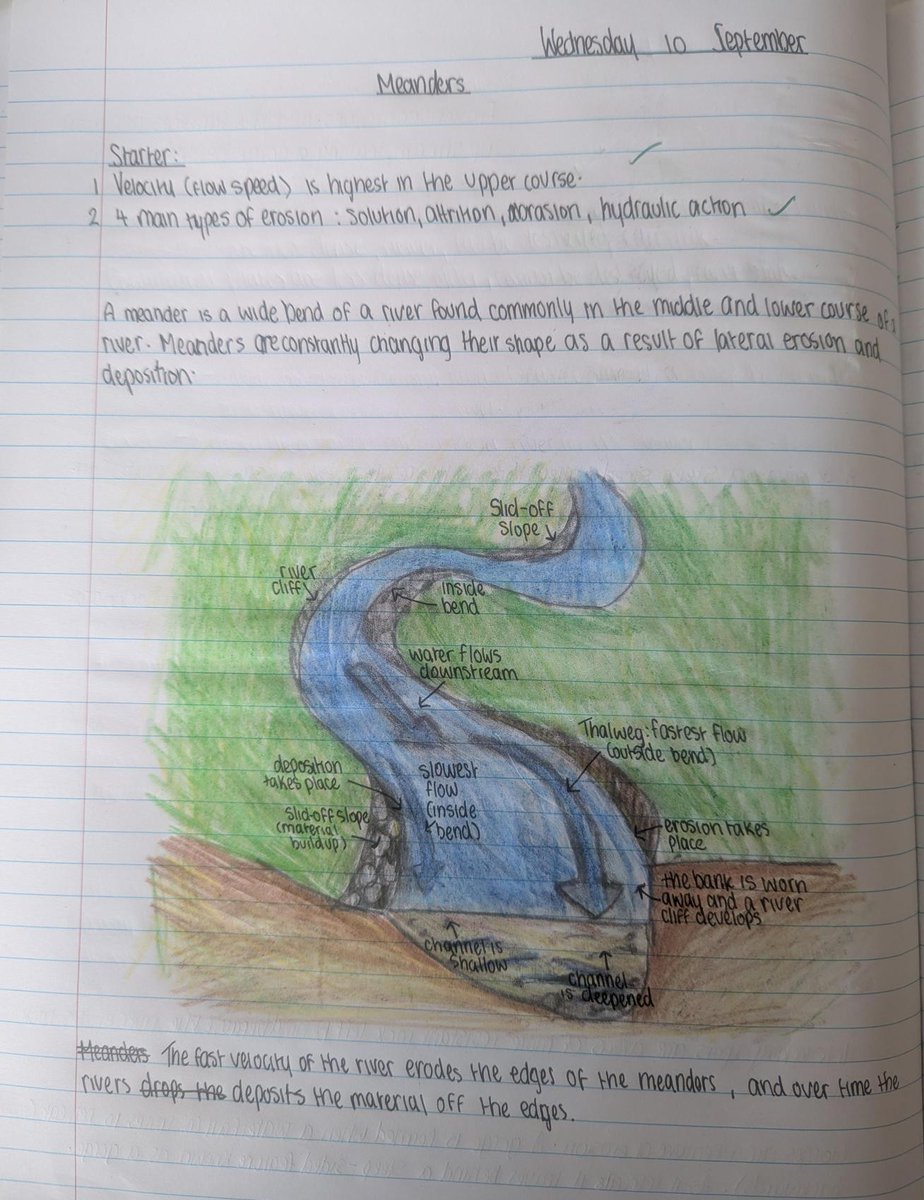 Wednesday 10 September
Meanders
Starter:
1 Velocity (flow speed) is highest in the upper course.
2 4 main types of erosion : solution, attrition, abrasion, hydraulic action
A meander is a wide bend of a river found commonly in the middle and lower course of a
river. Meanders are constantly changing their shape as a result of lateral erosion and
deposition.
Slid-off
slope
river
cliff
inside
bend
water flows
downstream
Thalweg: fastest flow
(outside bend)
deposition
takes place
slowest
flow
(inside
bend)
slid-off slope
(material
buildup)
erosion takes
place
the bank is worn
away and a river
cliff develops
channel is
shallow
channel
is deepened
Meanders The fast velocity of the river erodes the edges of the meandors, and over time the
rivers drops the deposits the material off the edges.